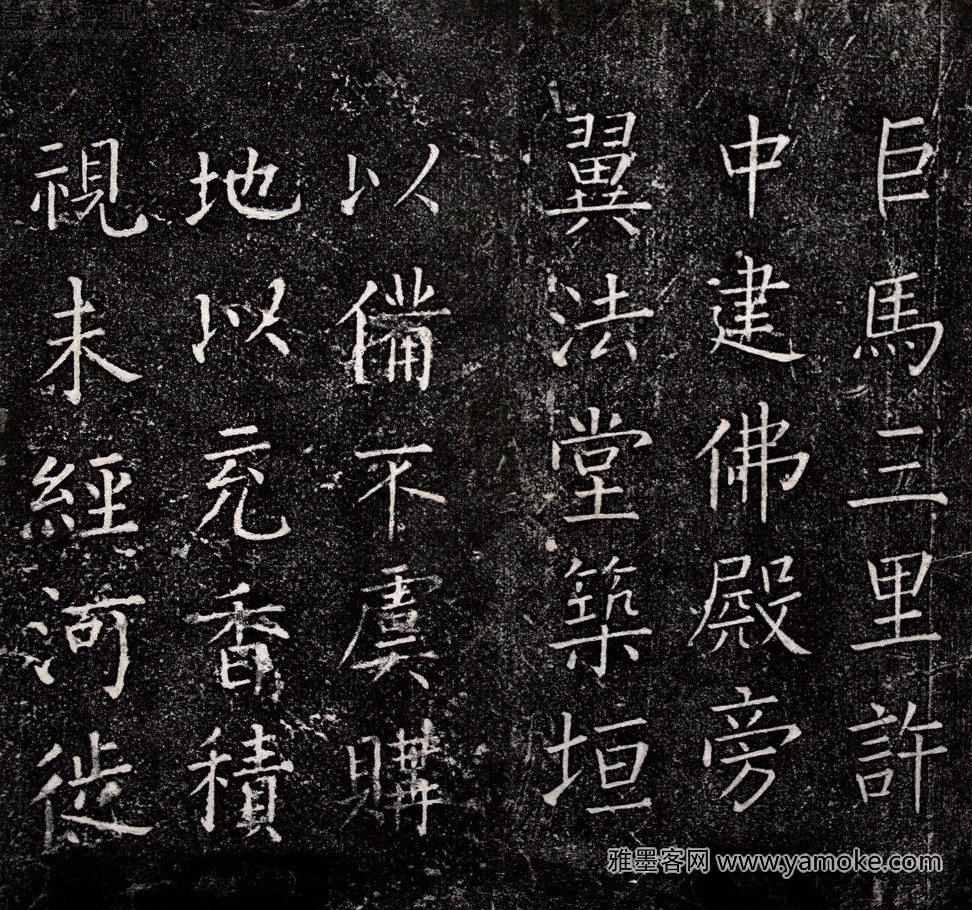 巨馬三里許
中建佛殿旁
翼法堂築垣
以備不虞購
地以充香積
視未經河徙
雅墨客网 www.yamoke.com